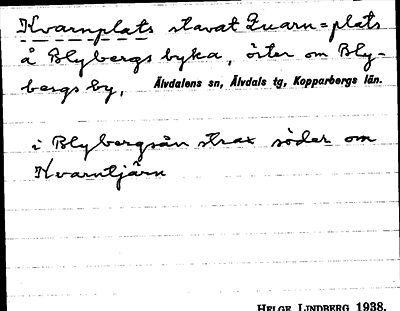 Kvarnplats stavat Quarn=plats
å Blybergs byka, öster om Bly-
bergs by, Älvdalens sn, Älvdals tg, Kopparbergs län.
i Blybergsån strax söder om
Kvarntjärn
HELGE LINDBERG 1938.